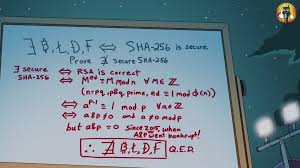 ∃ ₿,Ł,D,F ⟺ SHA-256 is secure
Prove ∄ secure SHA-256
∃ secure SHA-256 ⟺ RSA is correct
⟺ M^ed ≡ M mod n ∀ M ∈ ℤ
(n=pq, p&q prime, ed ≡ 1 mod φ(n))
⟺ a^p-1 ≡ 1 mod p ∀ a ∈ ℤ
⟺ a&p ≠ 0 and a ≢ 0 mod p
but a&p = 0 since 2015, when A&P went bankrupt!
∴ ∄ ₿,Ł,D,F Q.E.D.